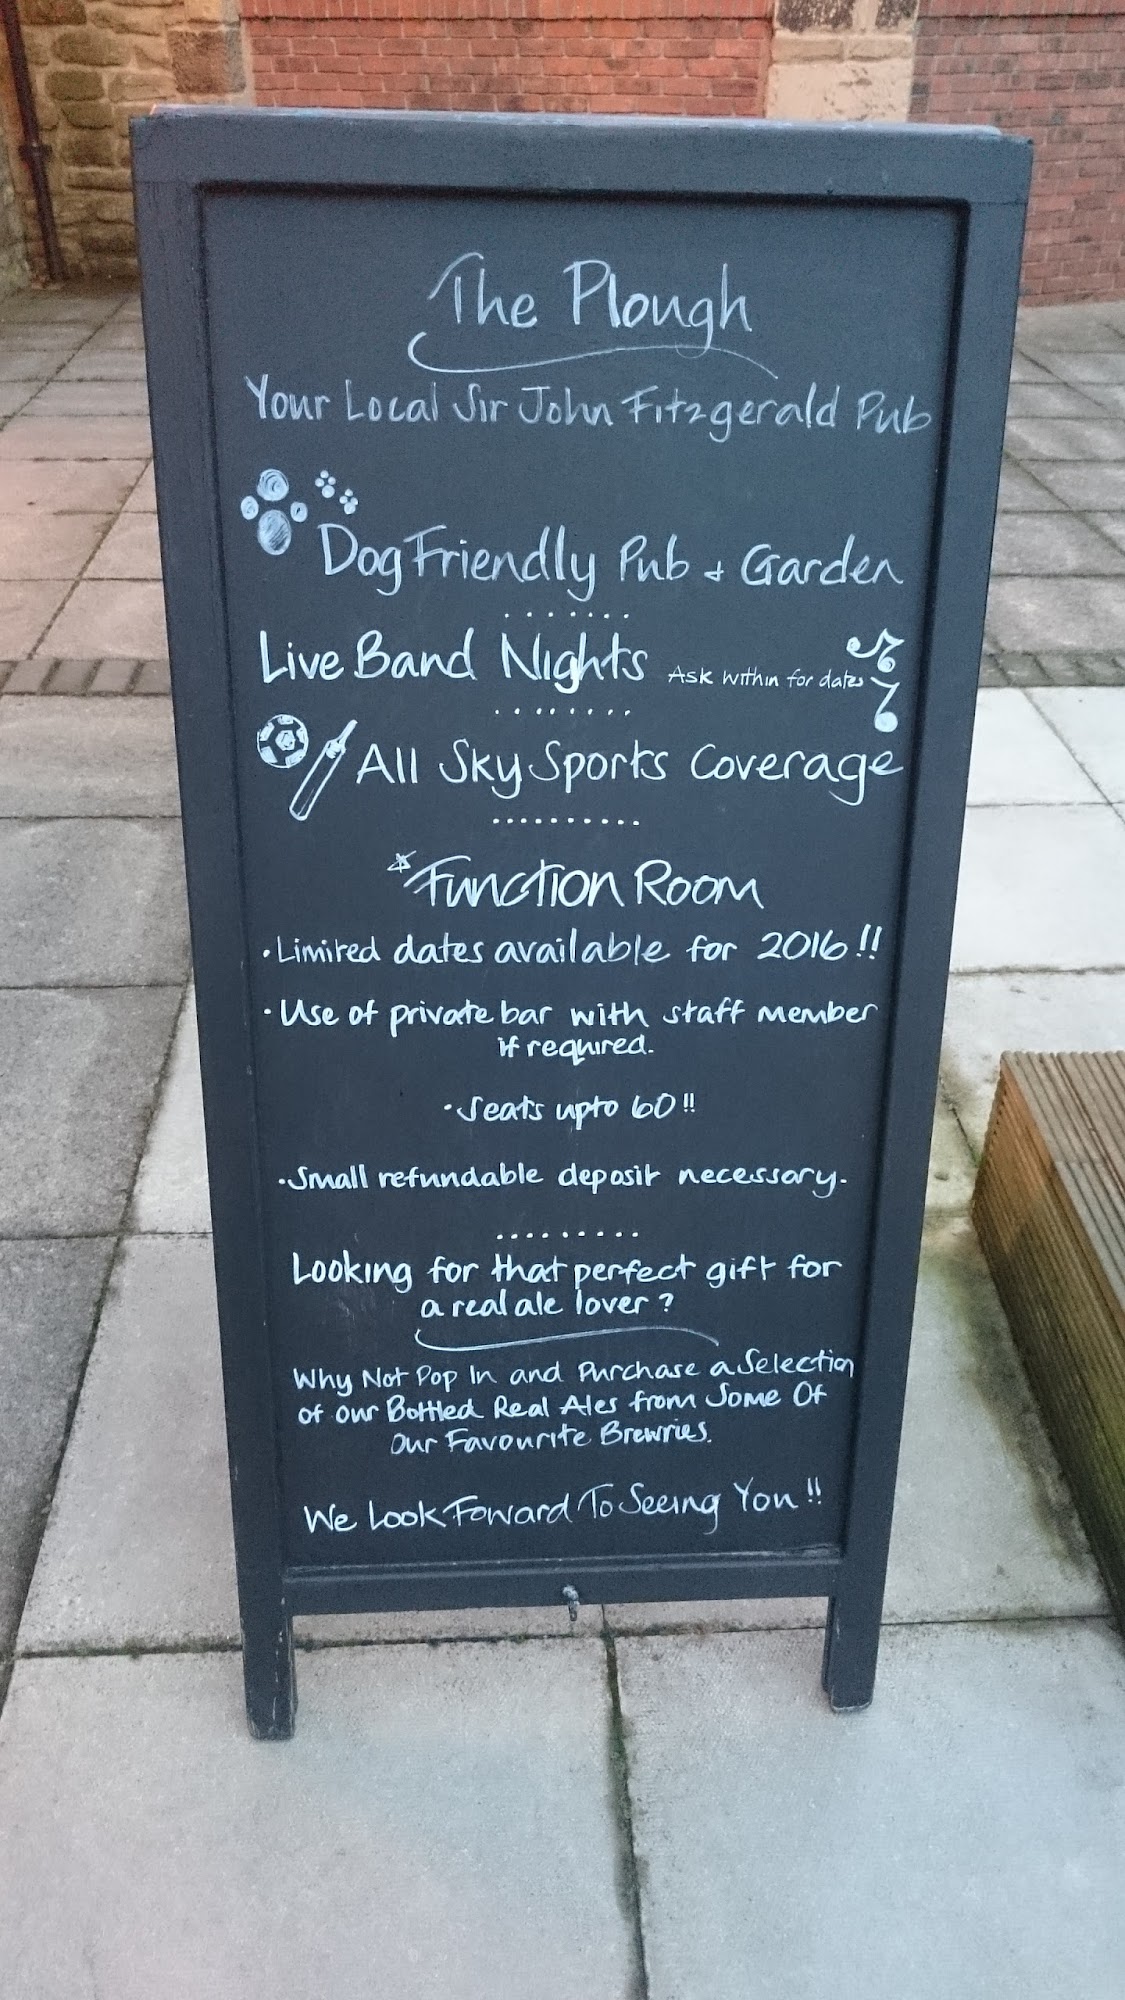 The Plough
Your Local Sir John Fitzgerald Pub
Dog Friendly Pub + Garden
Live Band Nights Ask within for dates
All Sky Sports Coverage
*Function Room
• Limited dates available for 2016!!
• Use of private bar with staff member
if required.
• Seats upto 60!!
• Small refundable deposit necessary.
Looking for that perfect gift for
a real ale lover?
Why Not Pop In and Purchase a Selection
of our Bottled Real Ales from Some Of
Our Favourite Brewries.
We Look Foward To Seeing You!!